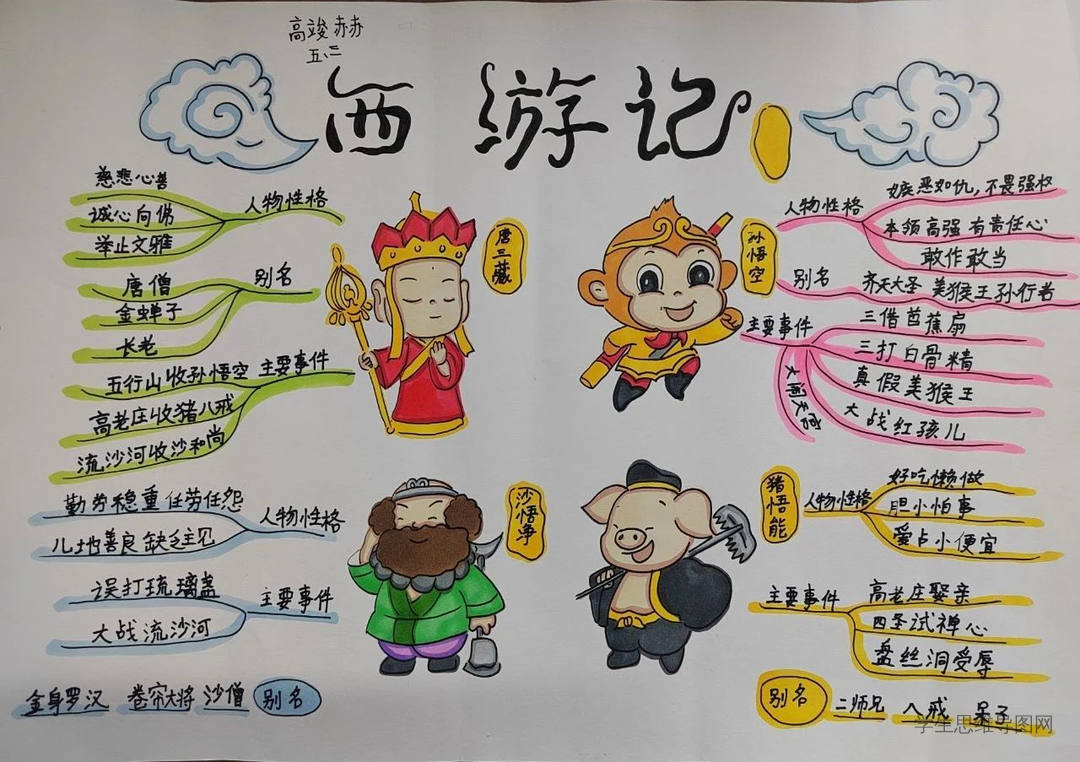 高竣赫
五、三
西游记
慈悲心善
诚心向佛
举止文雅
人物性格
唐僧
金蝉子
长老
别名
五行山收孙悟空
高老庄收猪八戒
流沙河收沙和尚
主要事件
唐三藏
孙悟空
人物性格
嫉恶如仇,不畏强权
本领高强 有责任心
敢作敢当
别名
齐天大圣 美猴王 孙行者
主要事件
三借芭蕉扇
三打白骨精
真假美猴王
大战红孩儿
大闹天宫
勤劳稳重 任劳任怨
心地善良 缺乏主见
人物性格
误打琉璃盏
大战流沙河
主要事件
金身罗汉 卷帘大将 沙僧 别名
沙悟净
猪悟能
人物性格
好吃懒做
胆小怕事
爱占小便宜
主要事件
高老庄娶亲
四圣试禅心
盘丝洞受辱
别名 二师兄 八戒 呆子
学生思维导图网